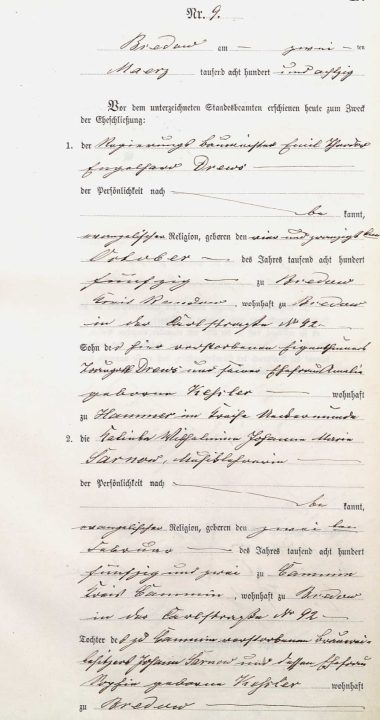 Nr. 9.
Bredow am zwei ten
Maerz tausend acht hundert und achtzig
Vor dem unterzeichneten Standesbeamten erschienen heute zum Zweck
der Eheschließung:
1. der Regierungs Baumeister Emil Theodor
Engelhard Drews
der Persönlichkeit nach
be kannt,
evangelischer Religion, geboren den vier und zwanzigsten
October des Jahres tausend acht hundert
fünfzig zu Bredow
Kreis Randow, wohnhaft zu Bredow
in der Carlstraße No 42
Sohn des hier verstorbenen Eigenthümers
Drews und seiner Ehefrau Amalie
geborene Kessler wohnhaft
zu Hammer im Kreise Ueckermünde
2. die Wilhelmine Johanne Marie
Sarnow, Musiklehrerin
der Persönlichkeit nach
be kannt,
evangelischer Religion, geboren den zwei ten
Februar des Jahres tausend acht hundert
fünfzig und zwei zu Cammin
Kreis Cammin, wohnhaft zu Bredow
in der Carlstraße No 92
Tochter des zu Cammin verstorbenen Brauerei
besitzers Johann Sarnow und dessen Ehefrau
Sophie geborene Kessler wohnhaft
zu Bredow